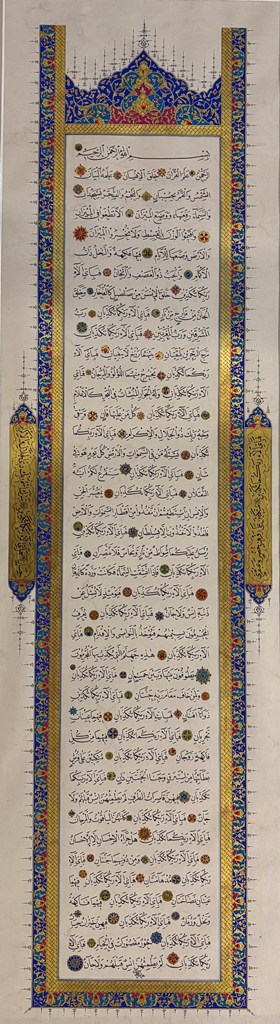 بسم الله الرحمن الرحيم
الرحمن علم القرآن خلق الإنسان علمه البيان
الشمس والقمر بحسبان والنجم والشجر يسجدان
والسماء رفعها ووضع الميزان ألا تطغوا في الميزان
وأقيموا الوزن بالقسط ولا تخسروا الميزان
والأرض وضعها للأنام فيها فاكهة والنخل ذات
الأكمام والحب ذو العصف والريحان فبأي آلاء
ربكما تكذبان خلق الإنسان من صلصال كالفخار وخلق
الجان من مارج من نار فبأي آلاء ربكما تكذبان رب
المشرقين ورب المغربين فبأي آلاء ربكما تكذبان
مرج البحرين يلتقيان بينهما برزخ لا يبغيان فبأي آلاء
ربكما تكذبان يخرج منهما اللؤلؤ والمرجان فبأي
آلاء ربكما تكذبان وله الجوار المنشآت في البحر كالأعلام
فبأي آلاء ربكما تكذبان كل من عليها فان ويبقى
وجه ربك ذو الجلال والإكرام فبأي آلاء ربكما
تكذبان يسأله من في السماوات والأرض كل يوم هو في
شأن فبأي آلاء ربكما تكذبان سنفرغ لكم أيه
الثقلان فبأي آلاء ربكما تكذبان يا معشر الجن
والإنس إن استطعتم أن تنفذوا من أقطار السماوات والأرض
فانفذوا لا تنفذون إلا بسلطان فبأي آلاء ربكما تكذبان
يرسل عليكما شواظ من نار ونحاس فلا تنتصران فبأي
آلاء ربكما تكذبان فإذا انشقت السماء فكانت وردة كالدهان
فبأي آلاء ربكما تكذبان فيومئذ لا يسأل عن
ذنبه إنس ولا جان فبأي آلاء ربكما تكذبان يعرف
المجرمون بسيماهم فيؤخذ بالنواصي والأقدام فبأي
آلاء ربكما تكذبان هذه جهنم التي يكذب بها المجرمون
يطوفون بينها وبين حميم آن فبأي آلاء ربكما تكذبان
ولمن خاف مقام ربه جنتان فبأي آلاء ربكما تكذبان
ذواتا أفنان فبأي آلاء ربكما تكذبان فيهما عينان
تجريان فبأي آلاء ربكما تكذبان فيهما من كل
فاكهة زوجان فبأي آلاء ربكما تكذبان متكئين على فرش
بطائنها من إستبرق وجنى الجنتين دان فبأي آلاء ربكما
تكذبان فيهن قاصرات الطرف لم يطمثهن إنس قبلهم ولا
جان فبأي آلاء ربكما تكذبان كأنهن الياقوت والمرجان
فبأي آلاء ربكما تكذبان هل جزاء الإحسان إلا الإحسان
فبأي آلاء ربكما تكذبان ومن دونهما جنتان فبأي آلاء
ربكما تكذبان مدهامتان فبأي آلاء ربكما تكذبان فيهما
عينان نضاختان فبأي آلاء ربكما تكذبان فيهما فاكهة
ونخل ورمان فبأي آلاء ربكما تكذبان فيهن خيرات حسان
فبأي آلاء ربكما تكذبان حور مقصورات في الخيام فبأي آلاء
ربكما تكذبان لم يطمثهن إنس قبلهم ولا جان